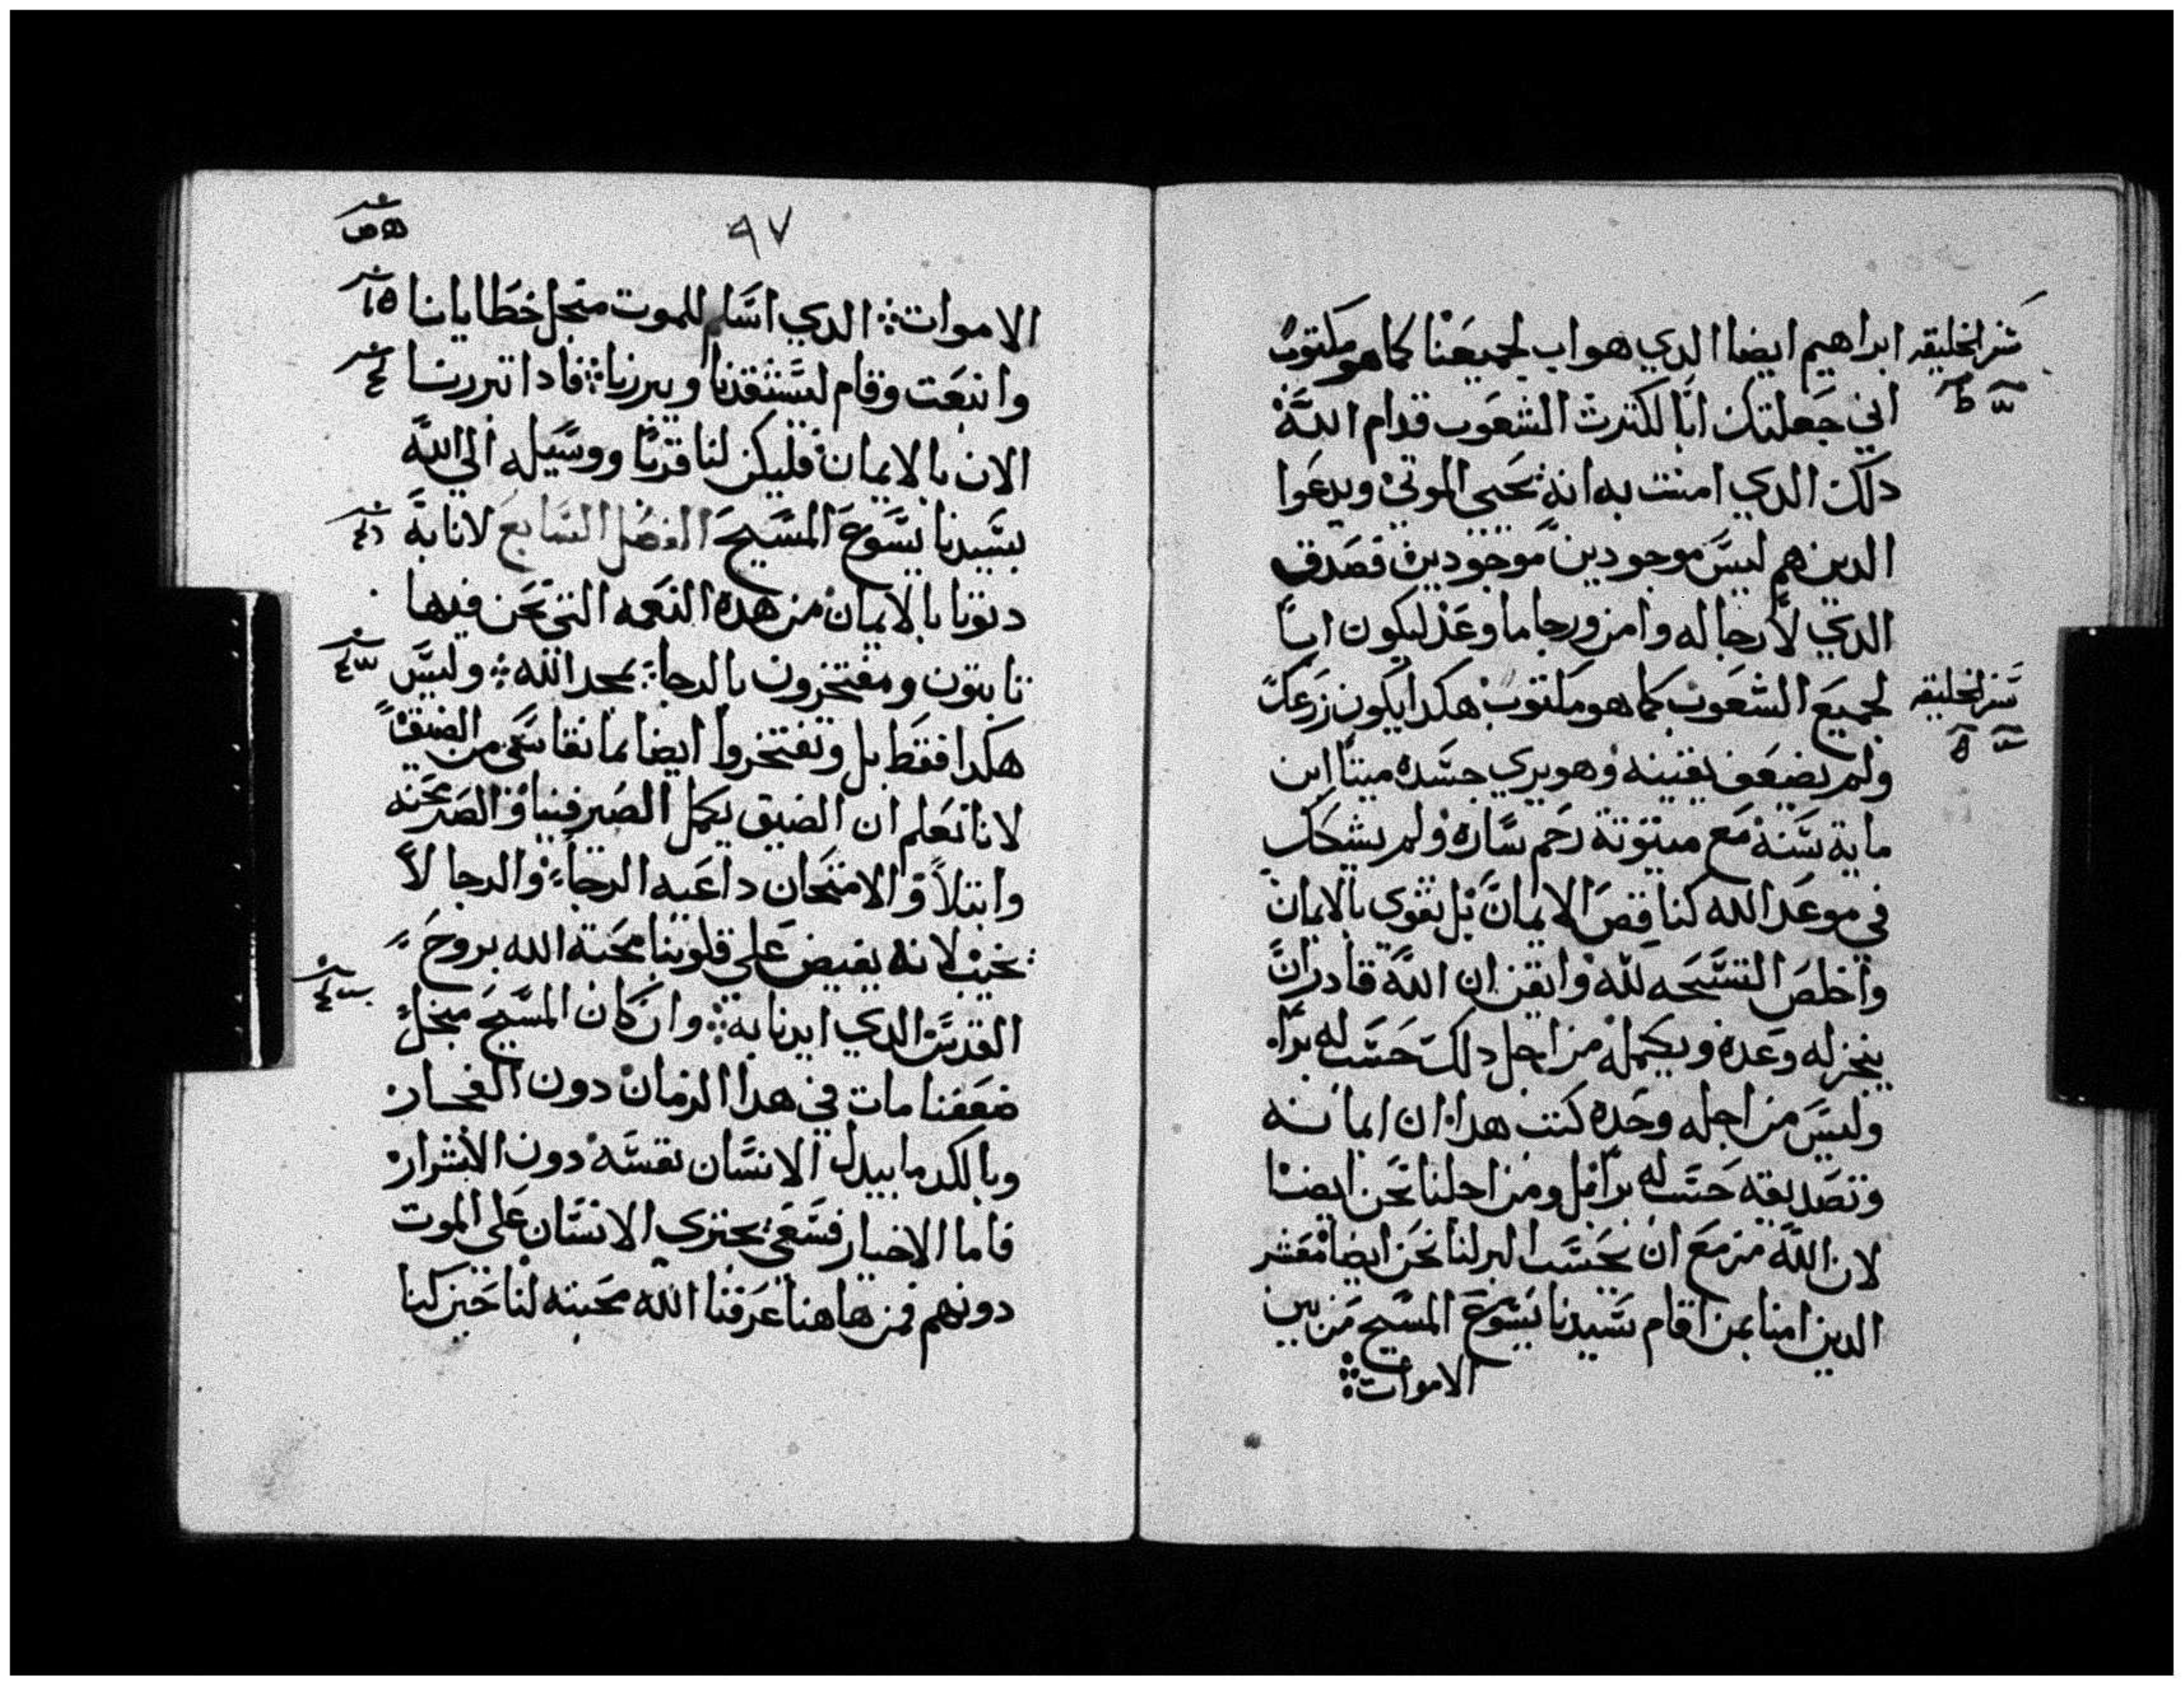 ابراهيم ايضا الدي هو اب لجميعنا كما هو مكتوب
سفر الخليقه
اني جعلتك ابا لكترت الشعوب قدام الله
دلك الدي امنت به انه يحيي الموتي ويدعوا
الدين هم ليس موجودين موجودين فصدق
الدي لا رجا له وامن ورجا ما وعد ليكون ابا
لجميع الشعوب كما هو مكتوب هكدا يكون زرعك
سفر الخليقه
ولم يضعف يقينه وهو يري جسده ميتا ابن
ماية سنة مع ميتوتة رحم ساره ولم يشكك
في موعد الله كناقص الايمان بل تقوي بالايمان
واخلص التسبحه لله وايقن ان الله قادر ان
ينجز له وعده ويكمله من اجل دلك حسب له برا
وليس من اجله وحده كتب هدا ان ايمانه
وتصديقه حسب له برا بل ومن اجلنا نحن ايضا
لان الله مزمع ان يحسب البر لنا نحن ايضا معشر
الدين امنا بمن اقام سيدنا يسوع المسيح من بين
الاموات
٩٧
الاموات الدي اسلم للموت منجل خطايانا
وانبعت وقام ليستنقدنا ويبررنا فادا تبررنا
الان بالايمان فليكن لنا قربا ووسيله الي الله
بسيدنا يسوع المسيح الفصل السابع لانا به
دنونا بالايمان من هده النعمه التي نحن فيها
تابتون ومفتخرون بالرجا بمجد الله وليس
هكدا فقط بل ونفتخروا ايضا بما نقاسي من الضيق
لانا نعلم ان الضيق يكمل الصبر فينا والصبر محنه
وابتلا والامتحان داعيه الرجا والرجا لا
يخيب لانه يفيض علي قلوبنا محبة الله بروح
القدس الدي ايدنا به وان كان المسيح منجل
ضعفنا مات في هدا الزمان دون الفجار
وبالكد ما يبدل الانسان نفسه دون الاشرار
فاما الاخيار فسعي يجتري الانسان علي الموت
دونهم فمن هاهنا عرفنا الله محبته لنا حين كنا